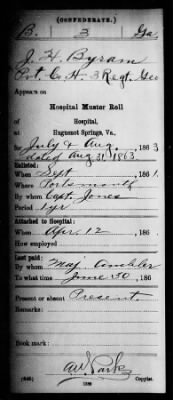 (CONFEDERATE.)
B. 3 Ga
J. H. Byram
Pvt. Co. H. 3 Regt. Geo
Appears on
Hospital Muster Roll
of Hospital,
Huguenot Springs, Va.,
for July & Aug., 1863
dated Aug 31, 1863.
Enlisted:
When Sept, 1861.
Where Portsmouth
By whom Capt. Jones
Period 1 yr
Attached to Hospital:
When Apr. 12, 186
How employed
Last paid:
By whom Maj. Ambler
To what time June 30, 186
Present or absent Present
Remarks:
Book mark:
Copyist.